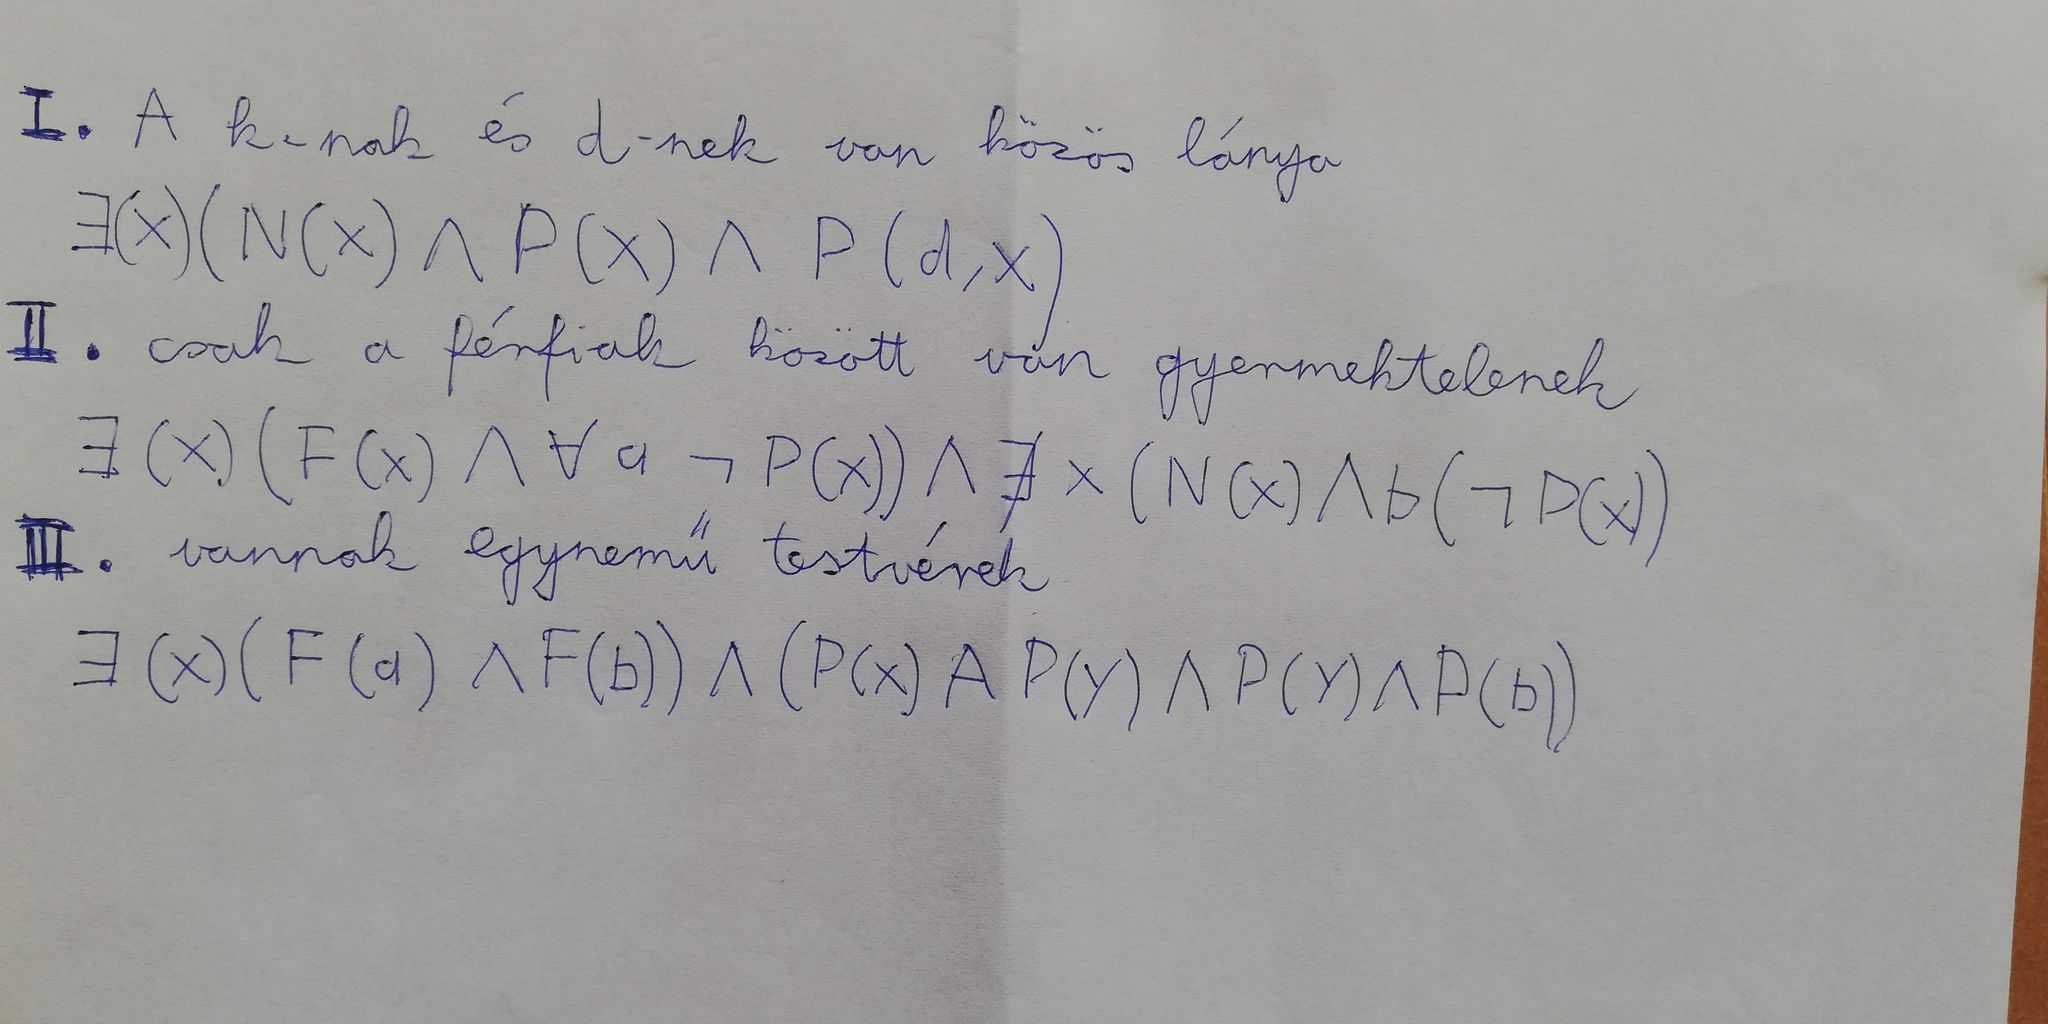 I. A k-nak és d-nek van közös lánya
∃(x)(N(x) ∧ P(x) ∧ P(d,x)
II. csak a férfiak között van gyermektelenek
∃(x)(F(x) ∧ ∀a ¬P(x)) ∧ ∄x(N(x) ∧ b(¬P(x))
III. vannak egynemű testvérek
∃(x)(F(a) ∧ F(b)) ∧ (P(x) A P(y) ∧ P(y) ∧ P(b))